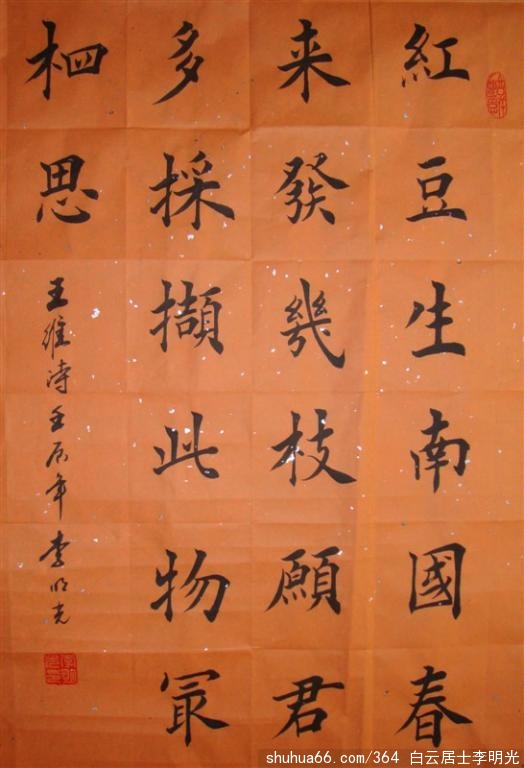 紅豆生南國春
来發幾枝願君
多採擷此物冣
相思
王維诗壬辰年李明光
shuhua66.com/364 白云居士李明光